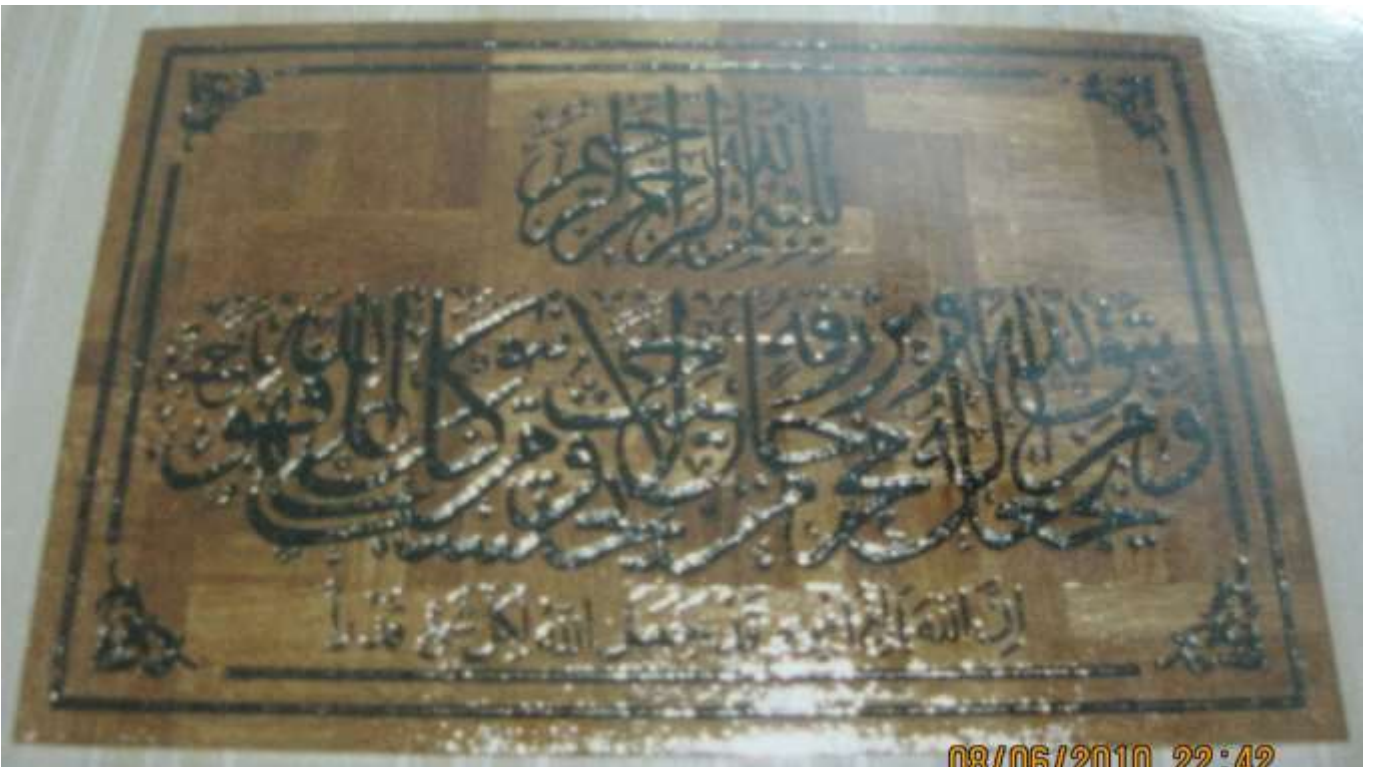 بسم الله الرحمن الرحيم
ومن يتق الله يجعل له مخرجا ويرزقه من حيث لا يحتسب ومن يتوكل على الله فهو حسبه
إن الله بالغ أمره قد جعل الله لكل شيء قدرا
08/06/2010 22:42